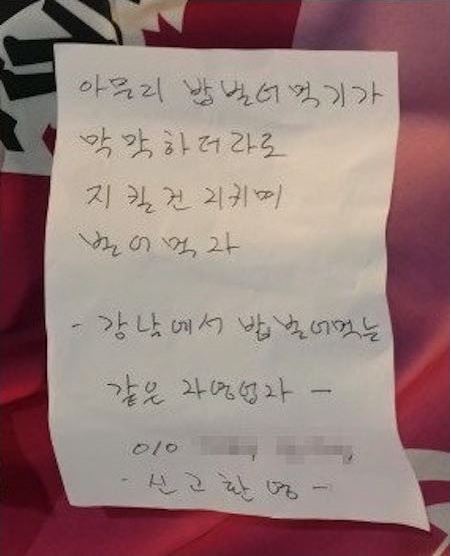 아무리 밥벌어먹기가
막막하더라로
지킬건 지키며
벌어먹자
- 강남에서 밥벌어먹는
같은 자영업자 -
010
- 신고환영 -